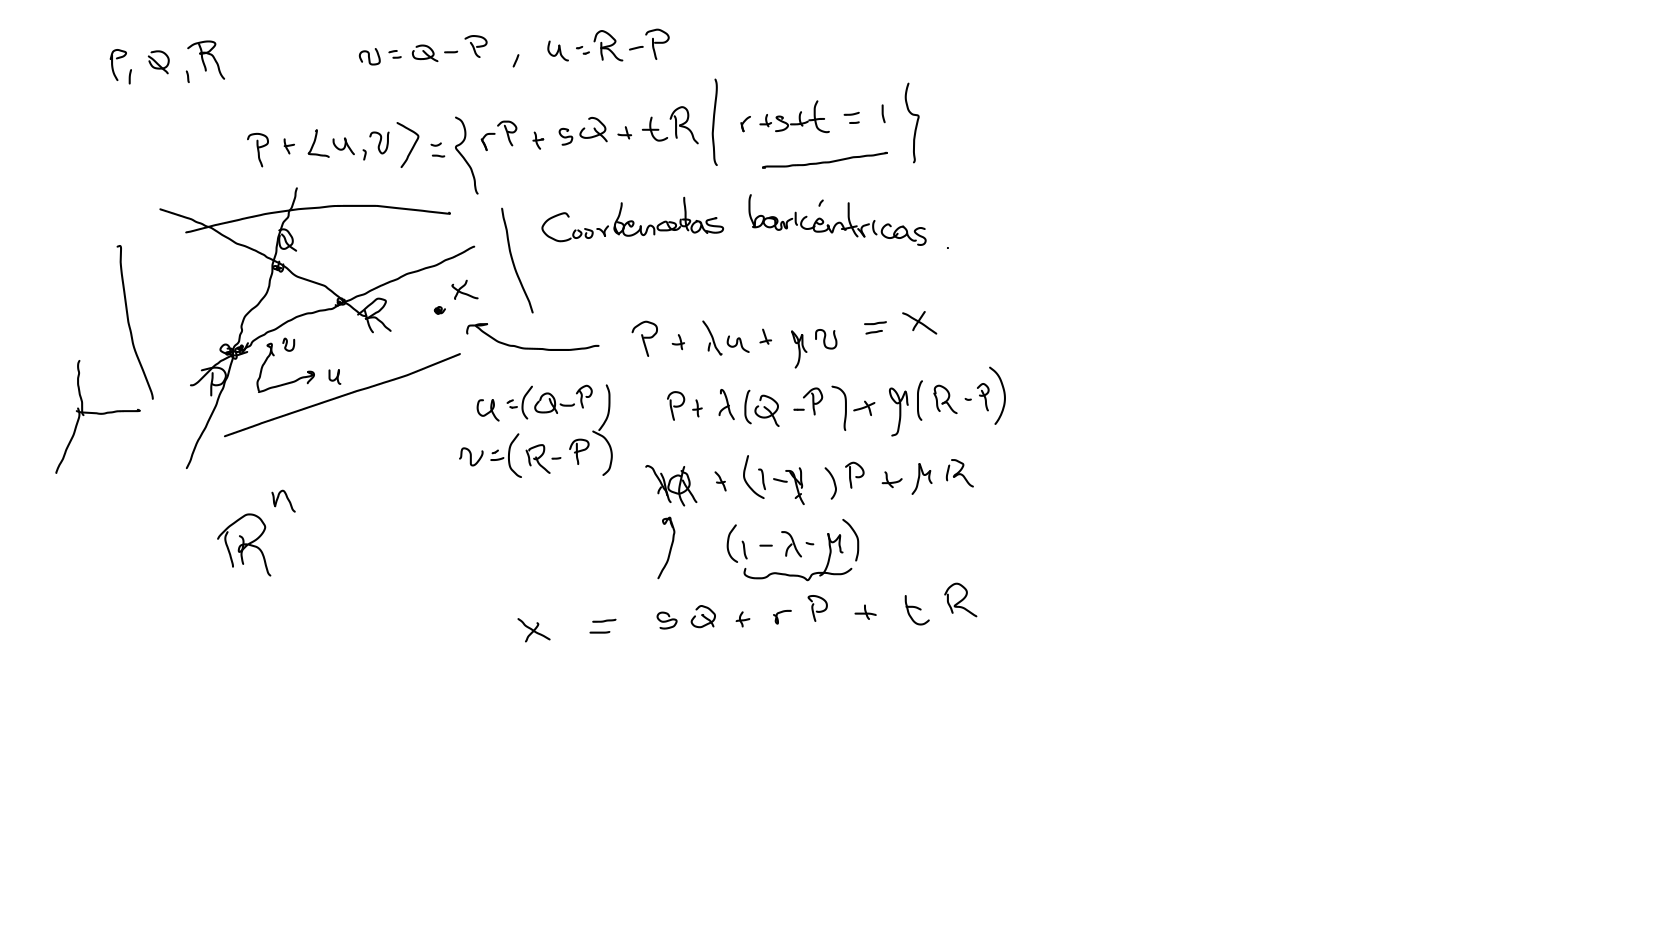 P, Q, R    v = Q - P , u = R - P
P + <u, v> = { rP + sQ + tR | r+s+t = 1 }
Coordenadas baricéntricas.
Q
x
R
P + λu + μv = x
v
P
u
u = (Q-P)    P + λ(Q-P) + μ(R-P)
v = (R-P)
λQ + (1-λ)P + μR
ℝⁿ
(1 - λ - μ)
x = sQ + rP + tR